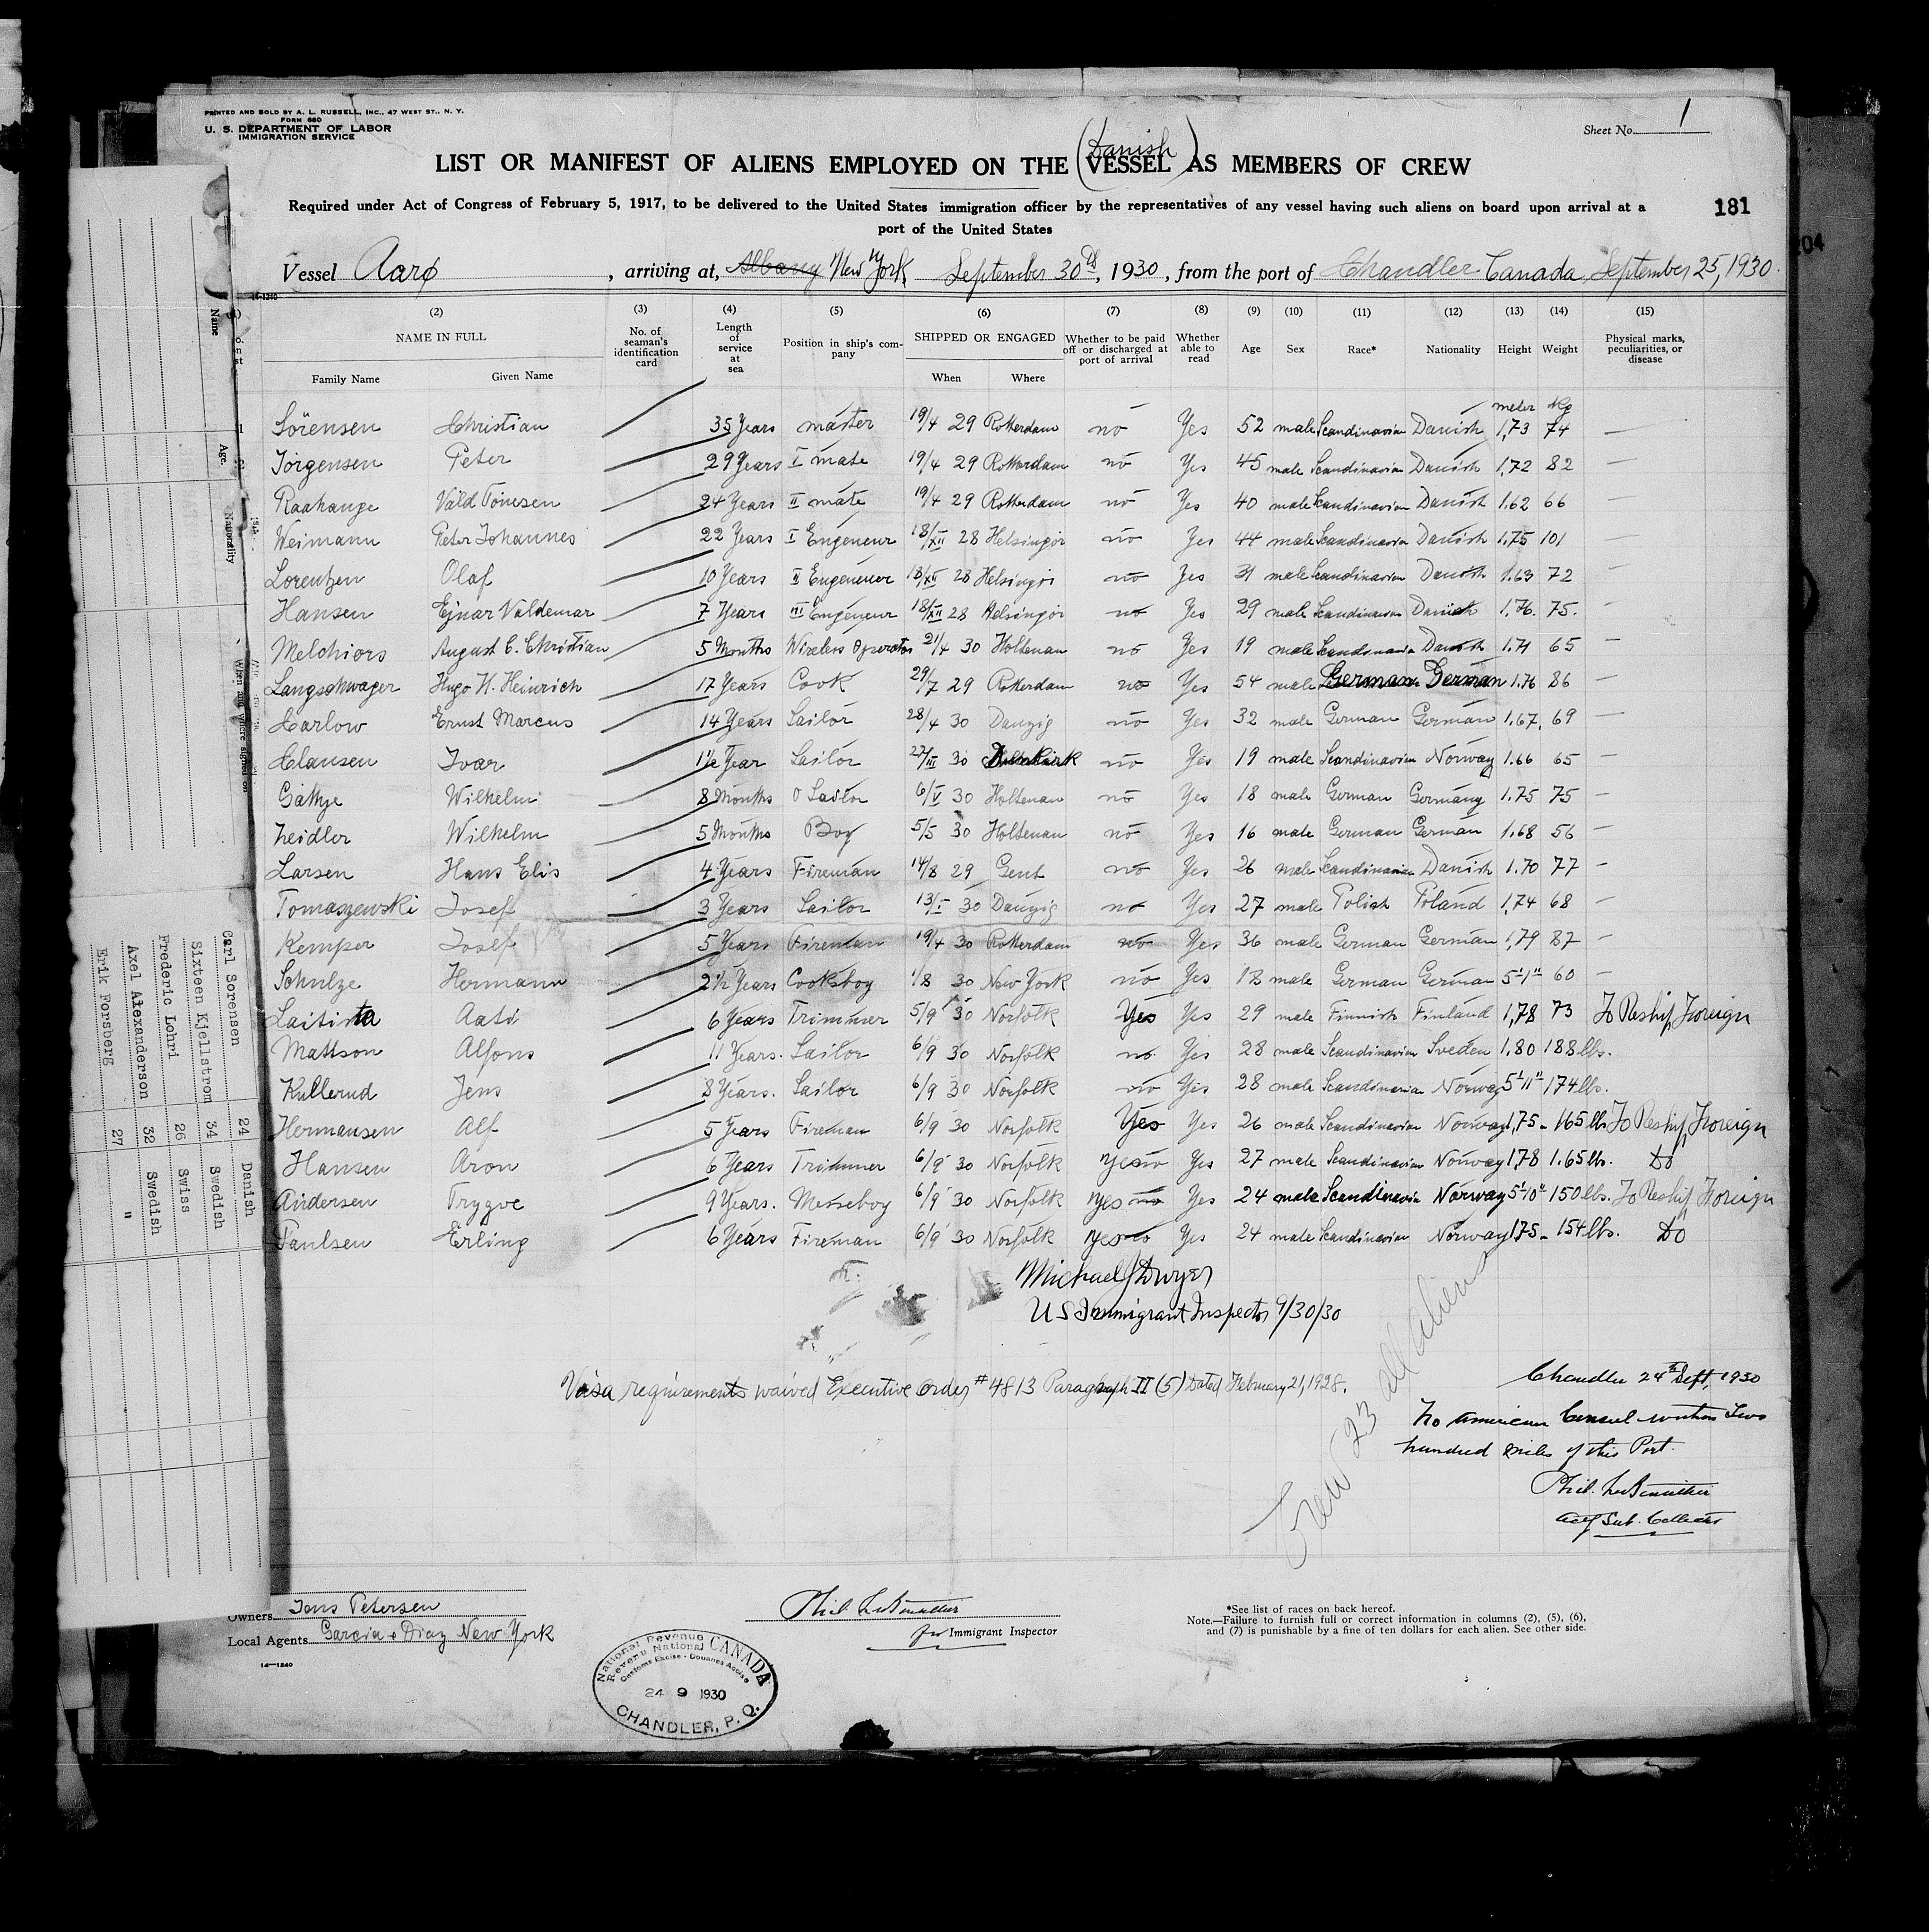 PRINTED AND SOLD BY A. L. RUSSELL, INC., 47 WEST ST., N. Y.
FORM 680
U. S. DEPARTMENT OF LABOR
IMMIGRATION SERVICE
Sheet No. 1
LIST OR MANIFEST OF ALIENS EMPLOYED ON THE (Danish VESSEL) AS MEMBERS OF CREW
Required under Act of Congress of February 5, 1917, to be delivered to the United States immigration officer by the representatives of any vessel having such aliens on board upon arrival at a
port of the United States
181
204
Vessel Aarø, arriving at, Albany New York September 30th, 1930, from the port of Chandler Canada September 25, 1930.
14-1240
(2) (3) (4) (5) (6) (7) (8) (9) (10) (11) (12) (13) (14) (15)
NAME IN FULL Family Name Given Name No. of seaman's identification card Length of service at sea Position in ship's company SHIPPED OR ENGAGED When Where Whether to be paid off or discharged at port of arrival Whether able to read Age Sex Race* Nationality Height Weight Physical marks, peculiarities, or disease
meter Kg
1 Sörensen Christian 35 Years master 19/4 29 Rotterdam no Yes 52 male Scandinavian Danish 1,73 74 —
Jörgensen Peter 29 Years I mate 19/4 29 Rotterdam no Yes 45 male Scandinavian Danish 1,72 82 —
Raahauge Vald Tönesen 24 Years II mate 19/4 29 Rotterdam no Yes 40 male Scandinavian Danish 1.62 66 —
Weimann Peter Johannes 22 Years I Engeneur 18/XII 28 Helsingör no Yes 44 male Scandinavian Danish 1.75 101 —
Lorentzen Olaf 10 Years II Engeneuer 18/XII 28 Helsingör no Yes 31 male Scandinavian Danish 1.63 72 —
Hansen Ejnar Valdemar 7 Years III Engeneur 18/XII 28 Helsingör no Yes 29 male Scandinavian Danish 1.76. 75. —
Melchiors August C. Christian 5 Months Wireless Operator 21/4 30 Holtenau no Yes 19 male Scandinavia Danish 1.71 65 —
Langschwager Hugo H. Heinrich 17 Years Cook 29/7 29 Rotterdam no Yes 54 male German German 1.76 86 —
Carlow Ernst Marcus 14 Years Sailor 28/4 30 Danzig no Yes 32 male German German 1.67, 69 —
Clausen Ivar 1½ Year Sailor 27/III 30 no Yes 19 male Scandinavian Norway 1.66 65 —
Gäthje Wilhelm 8 Months O Sailor 6/V 30 Holtenau no Yes 18 male German Germany 1.75 75 —
Zeidler Wilhelm 5 Months Boy 5/5 30 Holtenau no Yes 16 male German German 1.68 56 —
Larsen Hans Elis 4 Years Fireman 14/8 29 Gent no Yes 26 male Scandinavian Danish 1.70 77 —
Tomaszewski Josef 3 Years Sailor 13/I 30 Danzig no Yes 27 male Polish Poland 1,74 68 —
Kemper Josef 5 Years Fireman 19/4 30 Rotterdam no Yes 36 male German German 1,79 87 —
Schulze Hermann 2½ Years Cooksboy 1/8 30 New York no Yes 18 male German German 5'1" 60 —
Laitista Aato 6 Years Trimmer 5/9 30 Norfolk Yes Yes 29 male Finnish Finland 1,78 73 To Reship Foreign
Mattson Alfons 11 Years. Sailor 6/9 30 Norfolk no. Yes 28 male Scandinavian Sveden 1.80 188 lbs.
Kullerud Jens 8 Years. Sailor 6/9 30 Norfolk no Yes 28 male Scandinavian Norway 5'11" 174 lbs.
Hermansen Alf 5 Years Fireman 6/9 30 Norfolk Yes Yes 26 male Scandinavian Norway 1,75 - 165 lbs To Reship Foreign
Hansen Aron 6 Years Trimmer 6/9 30 Norfolk yes no Yes 27 male Scandinavian Norway 1,78 1.65 lbs. Do
Andersen Trygve 9 Years. Messeboy 6/9 30 Norfolk yes no Yes 24 male Scandinavia Norway 5'10" 150 lbs. To Reship Foreign
Paulsen Erling 6 Years Fireman 6/9 30 Norfolk yes no Yes 24 male Scandinavian Norway 1.75 - 154 lbs. Do
Michael J Dwyer
U S Immigrant Inspector 9/30/30
Visa requirements waived Executive Order # 4813 Paragraph II (5) Dated February 21, 1928.
Crew 23 all aliens
Chandler 24th Sept, 1930
No American Consul within Two
hundred miles of this Port.
Actg Sub. Collector
Owners Jens Petersen
Local Agents Garcia & Diaz New York
14—1240
for Immigrant Inspector
*See list of races on back hereof.
Note.—Failure to furnish full or correct information in columns (2), (5), (6),
and (7) is punishable by a fine of ten dollars for each alien. See other side.
National Revenue CANADA
Revenu National
Customs Excise - Douanes Accise
24 9 1930
CHANDLER, P. Q.
Name Age. Nationality When and where signed on
Carl Sorensen 24 Danish
Sixteen Kjellstrom 34 Swedish
Frederic Lohri 26 Swiss
Axel Alexanderson 32 Swedish
Erik Forsberg 27 "